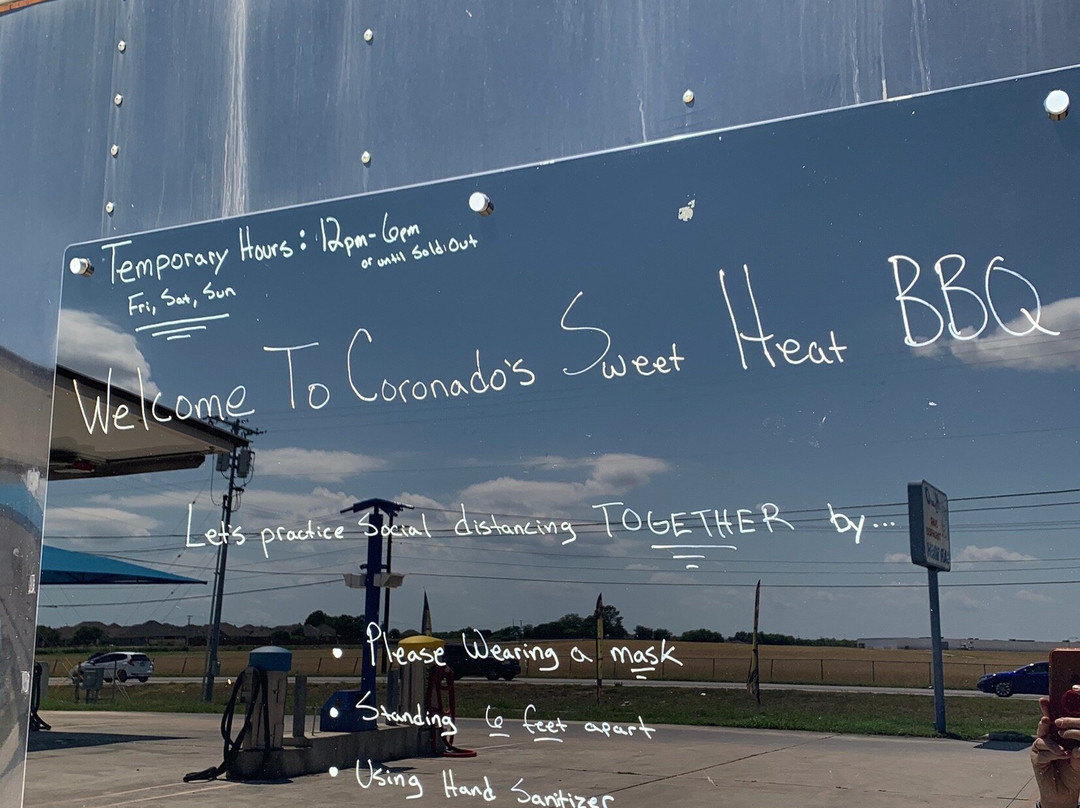 Temporary Hours: 12pm-6pm
or until Sold Out
Fri, Sat, Sun
Welcome To Coronado's Sweet Heat BBQ
Let's practice Social distancing TOGETHER by...
• Please Wearing a mask
• Standing 6 feet apart
• Using Hand Sanitizer